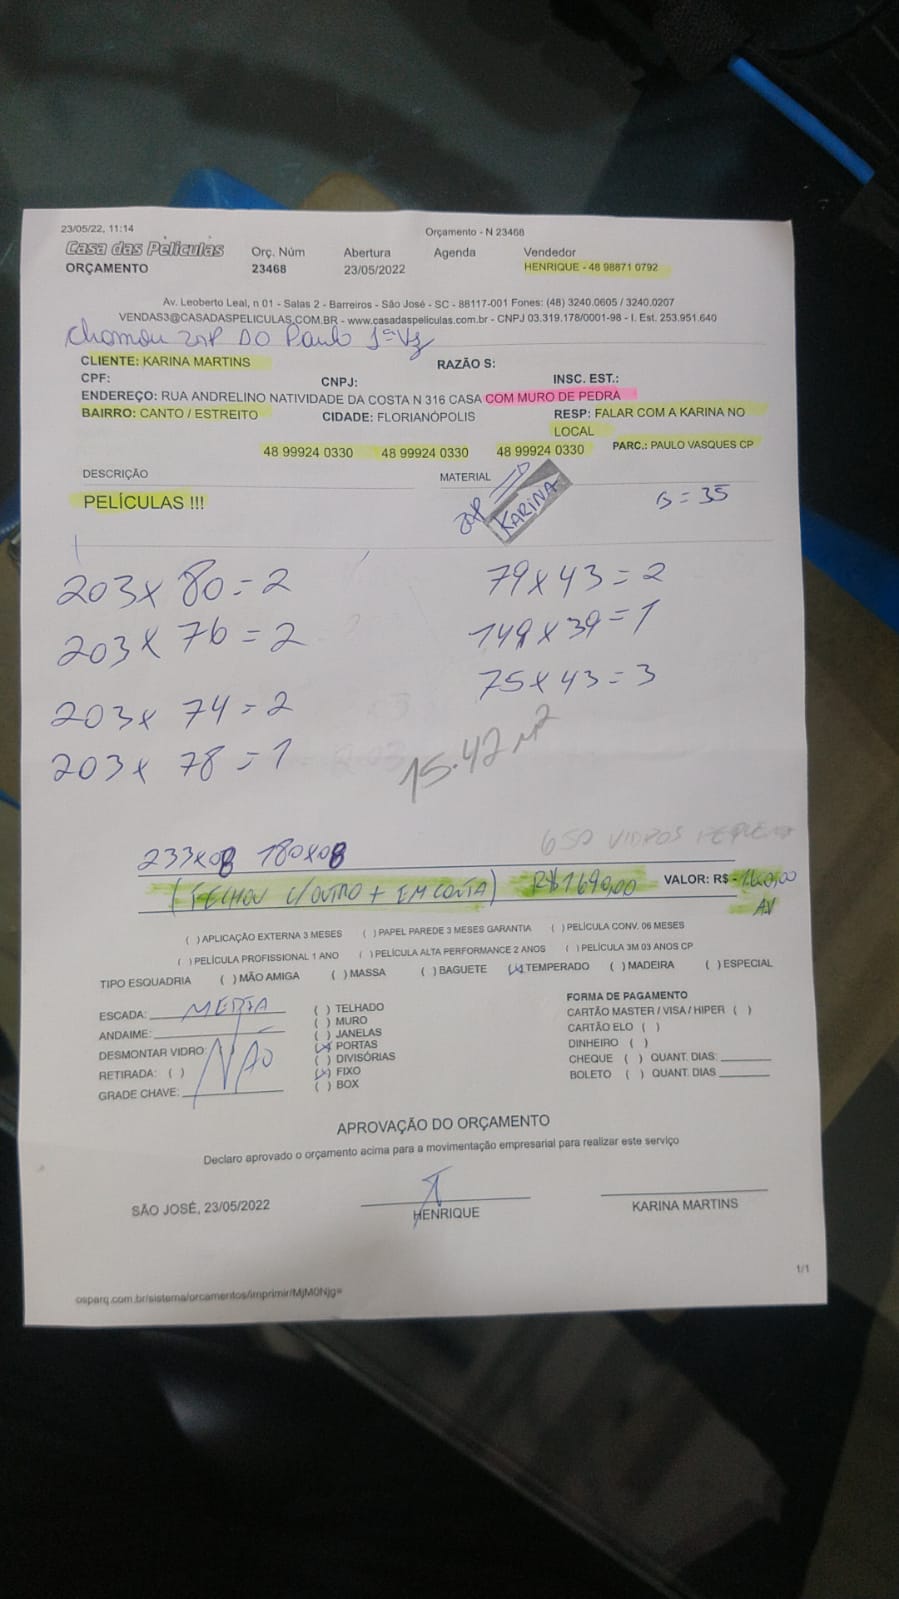 23/05/22, 11:14
Orçamento - N 23468
Casa das Películas
Orç. Núm Abertura Agenda Vendedor
ORÇAMENTO 23468 23/05/2022 HENRIQUE - 48 98871 0792
Av. Leoberto Leal, n 01 - Salas 2 - Barreiros - São José - SC - 88117-001 Fones: (48) 3240.0605 / 3240.0207
VENDAS3@CASADASPELICULAS.COM.BR - www.casadaspeliculas.com.br - CNPJ 03.319.178/0001-98 - I. Est. 253.951.640
Chamou zap Do Paulo 1ª Vz
CLIENTE: KARINA MARTINS RAZÃO S:
CPF: CNPJ: INSC. EST.:
ENDEREÇO: RUA ANDRELINO NATIVIDADE DA COSTA N 316 CASA COM MURO DE PEDRA
BAIRRO: CANTO / ESTREITO CIDADE: FLORIANÓPOLIS RESP: FALAR COM A KARINA NO
LOCAL
48 99924 0330 48 99924 0330 48 99924 0330 PARC.: PAULO VASQUES CP
DESCRIÇÃO MATERIAL
PELÍCULAS !!!
zap KARINA
G = 35
203 x 80 = 2 79 x 43 = 2
203 x 76 = 2 149 x 39 = 1
203 x 74 = 2 75 x 43 = 3
203 x 78 = 1
15.42 m²
650 VIDROS
233x08 180x08
(FECHOU C/OUTRO + EM CONTA) R$ 1690,00 VALOR: R$
AV
( ) APLICAÇÃO EXTERNA 3 MESES ( ) PAPEL PAREDE 3 MESES GARANTIA ( ) PELÍCULA CONV. 06 MESES
( ) PELÍCULA PROFISSIONAL 1 ANO ( ) PELÍCULA ALTA PERFORMANCE 2 ANOS ( ) PELÍCULA 3M 03 ANOS CP
TIPO ESQUADRIA ( ) MÃO AMIGA ( ) MASSA ( ) BAGUETE (x) TEMPERADO ( ) MADEIRA ( ) ESPECIAL
ESCADA: MEDIA
ANDAIME:
DESMONTAR VIDRO: NÃO
RETIRADA: ( )
GRADE CHAVE:
( ) TELHADO
( ) MURO
( ) JANELAS
(x) PORTAS
( ) DIVISÓRIAS
(x) FIXO
( ) BOX
FORMA DE PAGAMENTO
CARTÃO MASTER / VISA / HIPER ( )
CARTÃO ELO ( )
DINHEIRO ( )
CHEQUE ( ) QUANT. DIAS:
BOLETO ( ) QUANT. DIAS
APROVAÇÃO DO ORÇAMENTO
Declaro aprovado o orçamento acima para a movimentação empresarial para realizar este serviço
SÃO JOSÉ, 23/05/2022
HENRIQUE
KARINA MARTINS
1/1
osparq.com.br/sistema/orcamentos/imprimir/MjM0Njg=